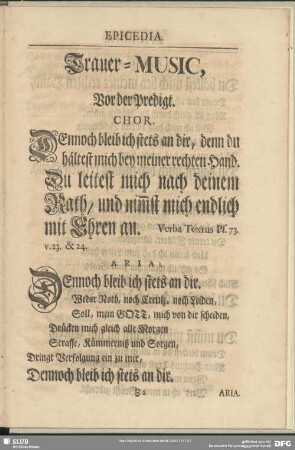 EPICEDIA.
Trauer-MUSIC,
Vor der Predigt.
CHOR.
DEnnoch bleib ich stets an dir, denn du
hältest mich bey meiner rechten Hand.
Du leitest mich nach deinem
Rath, und nim̃st mich endlich
mit Ehren an. Verba Textus Ps. 73.
v. 23. & 24.
ARIA.
DEnnoch bleib ich stets an dir.
Weder Noth, noch Creutz, noch Leiden,
Soll, mein GOTT, mich von dir scheiden,
Drücken mich gleich alle Morgen
Straffe, Kümmernüß und Sorgen,
Dringt Verfolgung ein zu mir,
Dennoch bleib ich stets an dir.
ARIA.
SLUB
Wir führen Wissen.
gefördert von der
Deutschen Forschungsgemeinschaft
DFG